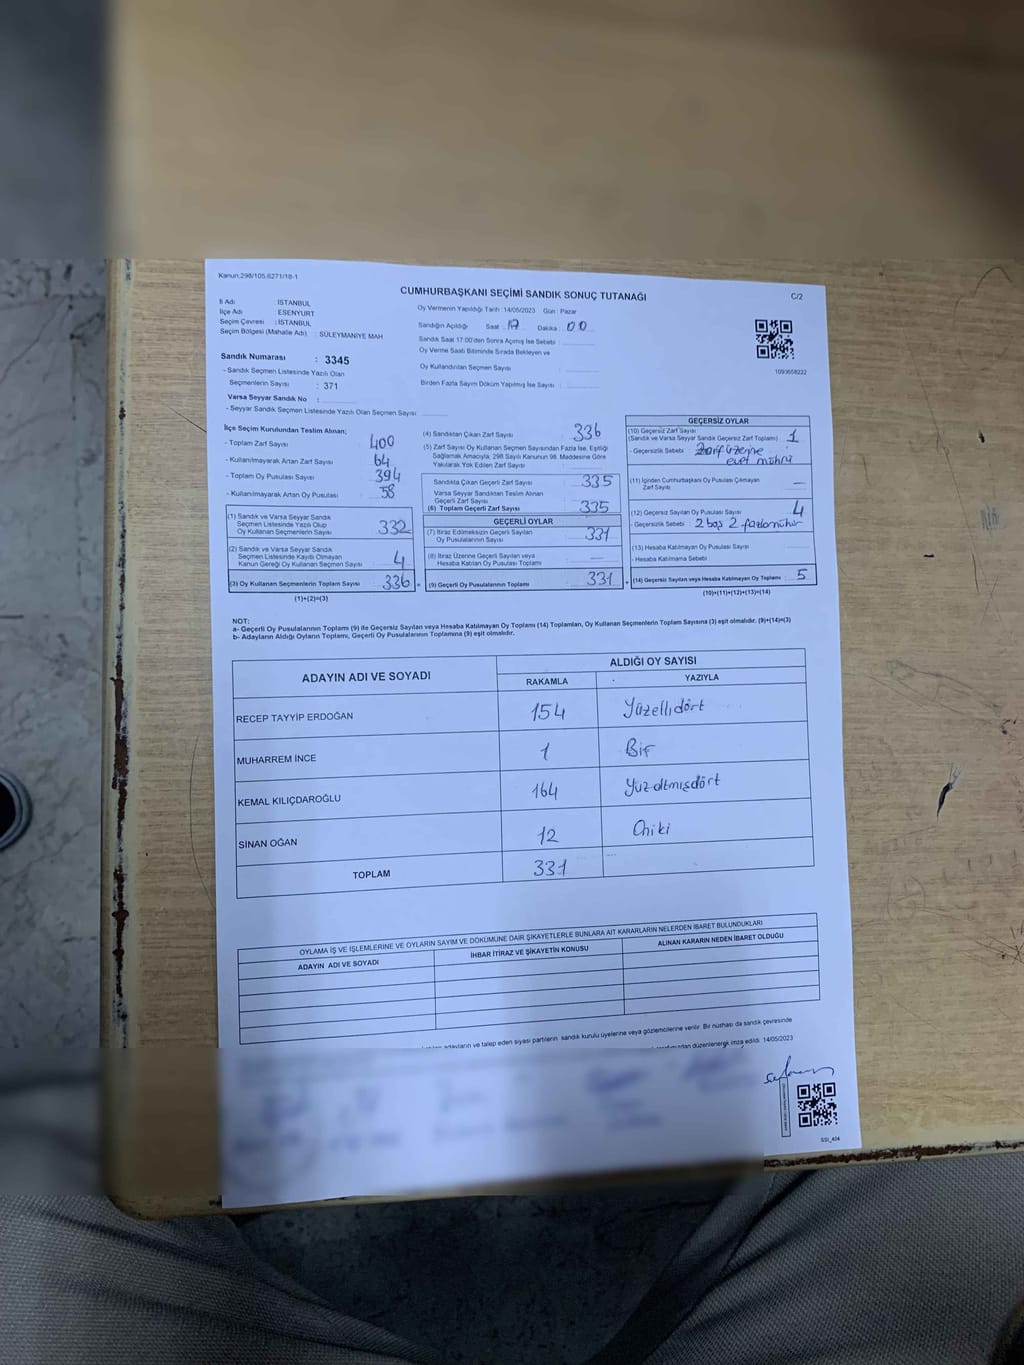 Kanun:298/105,6271/18-1
CUMHURBAŞKANI SEÇİMİ SANDIK SONUÇ TUTANAĞI
C/2
İl Adı : İSTANBUL
İlçe Adı : ESENYURT
Seçim Çevresi : İSTANBUL
Seçim Bölgesi (Mahalle Adı) : SÜLEYMANİYE MAH
Sandık Numarası : 3345
- Sandık Seçmen Listesinde Yazılı Olan
Seçmenlerin Sayısı : 371
Varsa Seyyar Sandık No :
- Seyyar Sandık Seçmen Listesinde Yazılı Olan Seçmen Sayısı
Oy Vermenin Yapıldığı Tarih : 14/05/2023 Gün : Pazar
Sandığın Açıldığı Saat 17 Dakika : 00
Sandık Saat 17.00'den Sonra Açılmış İse Sebebi :
Oy Verme Saati Bitiminde Sırada Bekleyen ve
Oy Kullandırılan Seçmen Sayısı :
Birden Fazla Sayım Döküm Yapılmış İse Sayısı :
1093658222
İlçe Seçim Kurulundan Teslim Alınan;
- Toplam Zarf Sayısı 400
- Kullanılmayarak Artan Zarf Sayısı 64
- Toplam Oy Pusulası Sayısı 394
- Kullanılmayarak Artan Oy Pusulası 58
(1) Sandık ve Varsa Seyyar Sandık
Seçmen Listesinde Yazılı Olup
Oy Kullanan Seçmenlerin Sayısı 332
(2) Sandık ve Varsa Seyyar Sandık
Seçmen Listesinde Kayıtlı Olmayan
Kanun Gereği Oy Kullanan Seçmen Sayısı 4
(3) Oy Kullanan Seçmenlerin Toplam Sayısı 336
(1)+(2)=(3)
(4) Sandıktan Çıkan Zarf Sayısı 336
(5) Zarf Sayısı Oy Kullanan Seçmen Sayısından Fazla İse, Eşitliği
Sağlamak Amacıyla; 298 Sayılı Kanunun 98. Maddesine Göre
Yakılarak Yok Edilen Zarf Sayısı
Sandıkta Çıkan Geçerli Zarf Sayısı 335
Varsa Seyyar Sandıktan Teslim Alınan
Geçerli Zarf Sayısı
(6) Toplam Geçerli Zarf Sayısı 335
GEÇERLİ OYLAR
(7) İtiraz Edilmeksizin Geçerli Sayılan
Oy Pusulalarının Sayısı 331
(8) İtiraz Üzerine Geçerli Sayılan veya
Hesaba Katılan Oy Pusulası Sayısı —
= (9) Geçerli Oy Pusulalarının Toplamı 331
GEÇERSİZ OYLAR
(10) Geçersiz Zarf Sayısı
(Sandık ve Varsa Seyyar Sandık Geçersiz Zarf Toplamı) 1
- Geçersizlik Sebebi Zarf üzerine
evet mührü
(11) İçinden Cumhurbaşkanı Oy Pusulası Çıkmayan
Zarf Sayısı —
(12) Geçersiz Sayılan Oy Pusulası Sayısı 4
- Geçersizlik Sebebi 2 boş 2 fazla mühür
(13) Hesaba Katılmayan Oy Pusulası Sayısı
- Hesaba Katılmama Sebebi
+ (14) Geçersiz Sayılan veya Hesaba Katılmayan Oy Toplamı 5
(10)+(11)+(12)+(13)=(14)
NOT:
a- Geçerli Oy Pusulalarının Toplamı (9) ile Geçersiz Sayılan veya Hesaba Katılmayan Oy Toplamı (14) Toplamları, Oy Kullanan Seçmenlerin Toplam Sayısına (3) eşit olmalıdır. (9)+(14)=(3)
b- Adayların Aldığı Oyların Toplamı, Geçerli Oy Pusulalarının Toplamına (9) eşit olmalıdır.
ADAYIN ADI VE SOYADI
ALDIĞI OY SAYISI
RAKAMLA YAZIYLA
RECEP TAYYİP ERDOĞAN 154 Yüzellidört
MUHARREM İNCE 1 Bir
KEMAL KILIÇDAROĞLU 164 Yüzaltmışdört
SİNAN OĞAN 12 Oniki
TOPLAM 331
OYLAMA İŞ VE İŞLEMLERİNE VE OYLARIN SAYIM VE DÖKÜMÜNE DAİR ŞİKAYETLERLE BUNLARA AİT KARARLARIN NELERDEN İBARET BULUNDUKLARI
ADAYIN ADI VE SOYADI İHBAR İTİRAZ VE ŞİKAYETİN KONUSU ALINAN KARARIN NEDEN İBARET OLDUĞU
adayların ve talep eden siyasi partilerin sandık kurulu üyelerine veya gözlemcilerine verilir. Bir nüshası da sandık çevresinde
düzenlenerek imza edildi. 14/05/2023